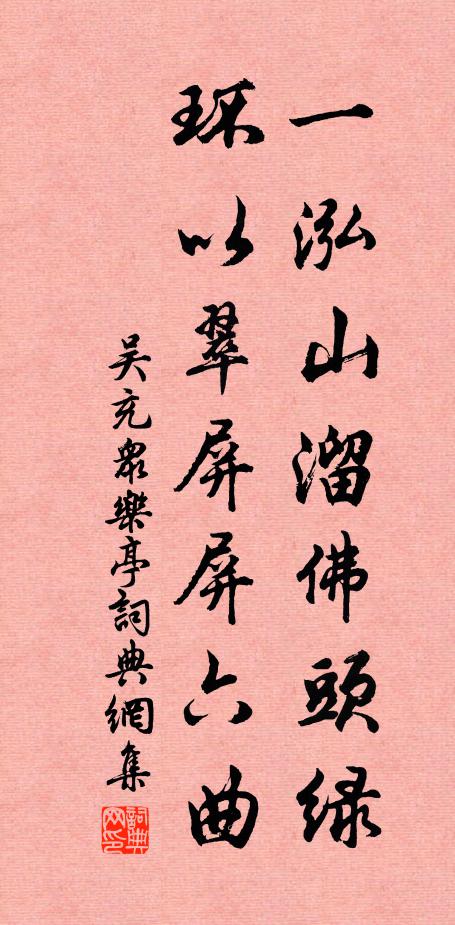 一泓山溜佛頭绿
環以翠屏屏六曲
吴充衆樂亭詞典網集
詞典网印